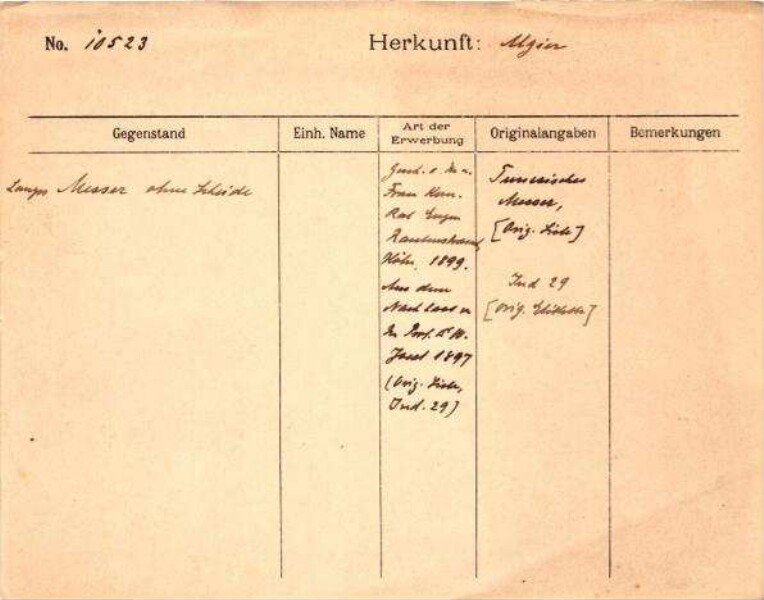 No. 10523
Herkunft: Algier
Gegenstand
Einh. Name
Art der
Erwerbung
Originalangaben
Bemerkungen
Langes Messer ohne Scheide
Gesch. v.
Frau Kom.
Rat Eugen
Rautenstrauch,
Köln, 1899.
Aus dem
Nachlass v.
Prof. Dr W.
Joest 1897
(Orig. Liste,
Ind. 29)
Tunesisches
Messer,
[Orig. Liste]
Ind 29
[Orig. Etikette]